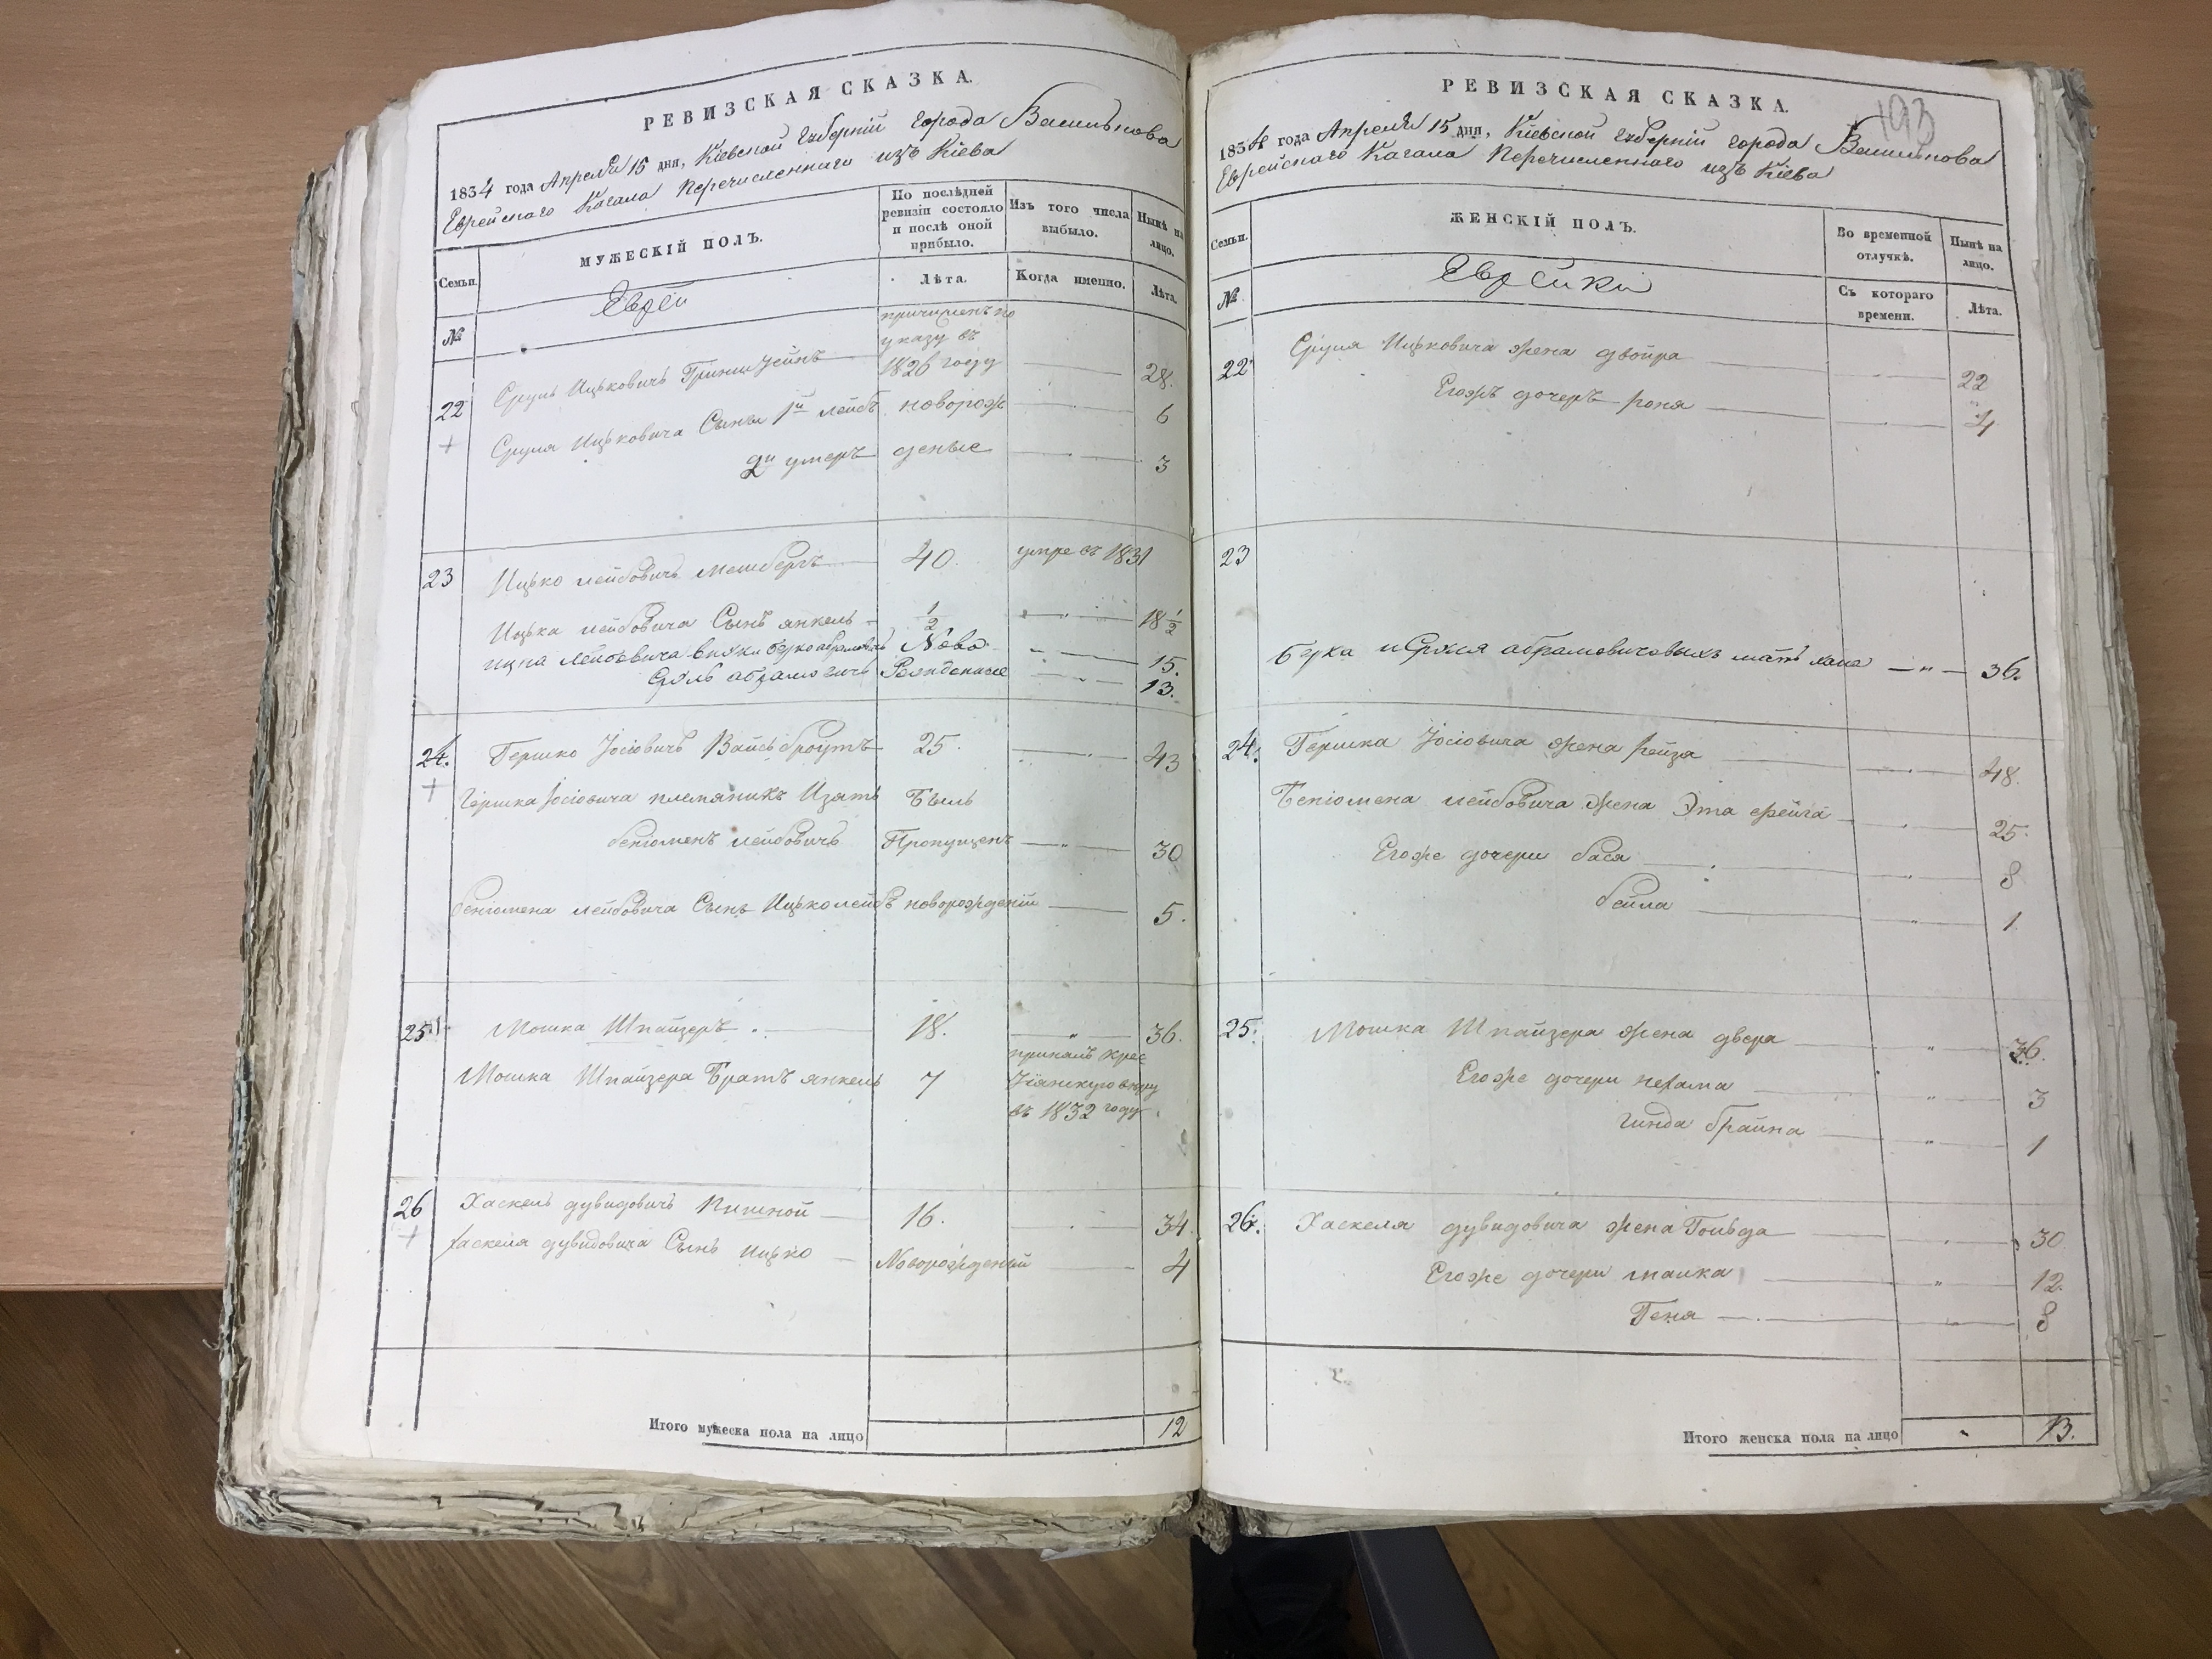 РЕВИЗСКАЯ СКАЗКА.
1834 года Апреля 15 дня, Кіевской Губерніи города Василькова
Еврейскаго Кагала Перечисленнаго изъ Кіева
Семьи.
МУЖЕСКІЙ ПОЛЪ.
По послѣдней ревизіи состояло и послѣ оной прибыло.
Изъ того числа выбыло.
Нынѣ на лицо.
№
Евреи
Лѣта.
Когда именно.
Лѣта.
причисленъ по
указу въ
22 Сруль Ицьковичъ 1826 году 28.
Сруля Ицьковича Сыны 1й лейбъ новорож 6
2й умеръ деные 3
23 Ицько лейбовичъ 40. умре въ 1831
Ицька лейбовича Сынъ янкель 1/2 18 1/2
лейбовича внуки берко абрамовичъ Ново 15.
Сруль абрамовичъ Рожденные 13.
24. Гершко Іосіовичъ Вайсъбротъ 25. 43
Гершка Іосіовича племяникъ Изять Былъ
беніоменъ лейбовичъ Пропущенъ 30
беніомена лейбовича Сынъ Ицько лейбъ новорожденій 5.
25. Мошка Шпайзеръ 18. 36.
Мошка Шпайзера Братъ янкель 7 принялъ Хрес
тіянскую веру
въ 1832 году
26 Хаскель дувидовичъ 16. 34.
Хаскеля дувидовича Сынъ Ицько Новорожденый 4
Итого мужеска пола на лицо 12
РЕВИЗСКАЯ СКАЗКА.
193
1834 года Апреля 15 дня, Кіевской Губерніи города Василькова
Еврейскаго Кагала Перечисленнаго изъ Кіева
Семьи.
ЖЕНСКІЙ ПОЛЪ.
Во временной отлучкѣ.
Нынѣ на лицо.
№
Еврейки
Съ котораго времени.
Лѣта.
22 Сруля Ицьковича жена двойра 22
Егожъ дочеръ роня 4
23
Берка и Сруля абрамовичовыхъ мать хана 36.
24. Гершка Іосіовича жена рейза 48.
Беніомена лейбовича жена Эта фейга 25.
Егоже дочери бася 8
бейла 1.
25. Мошка Шпайзера жена двера 36.
Егоже дочери нехама 3
гинда брайна 1
26. Хаскеля дувидовича жена Гольда 30
Егоже дочери малка 12.
Геня 8
Итого женска пола на лицо 13.